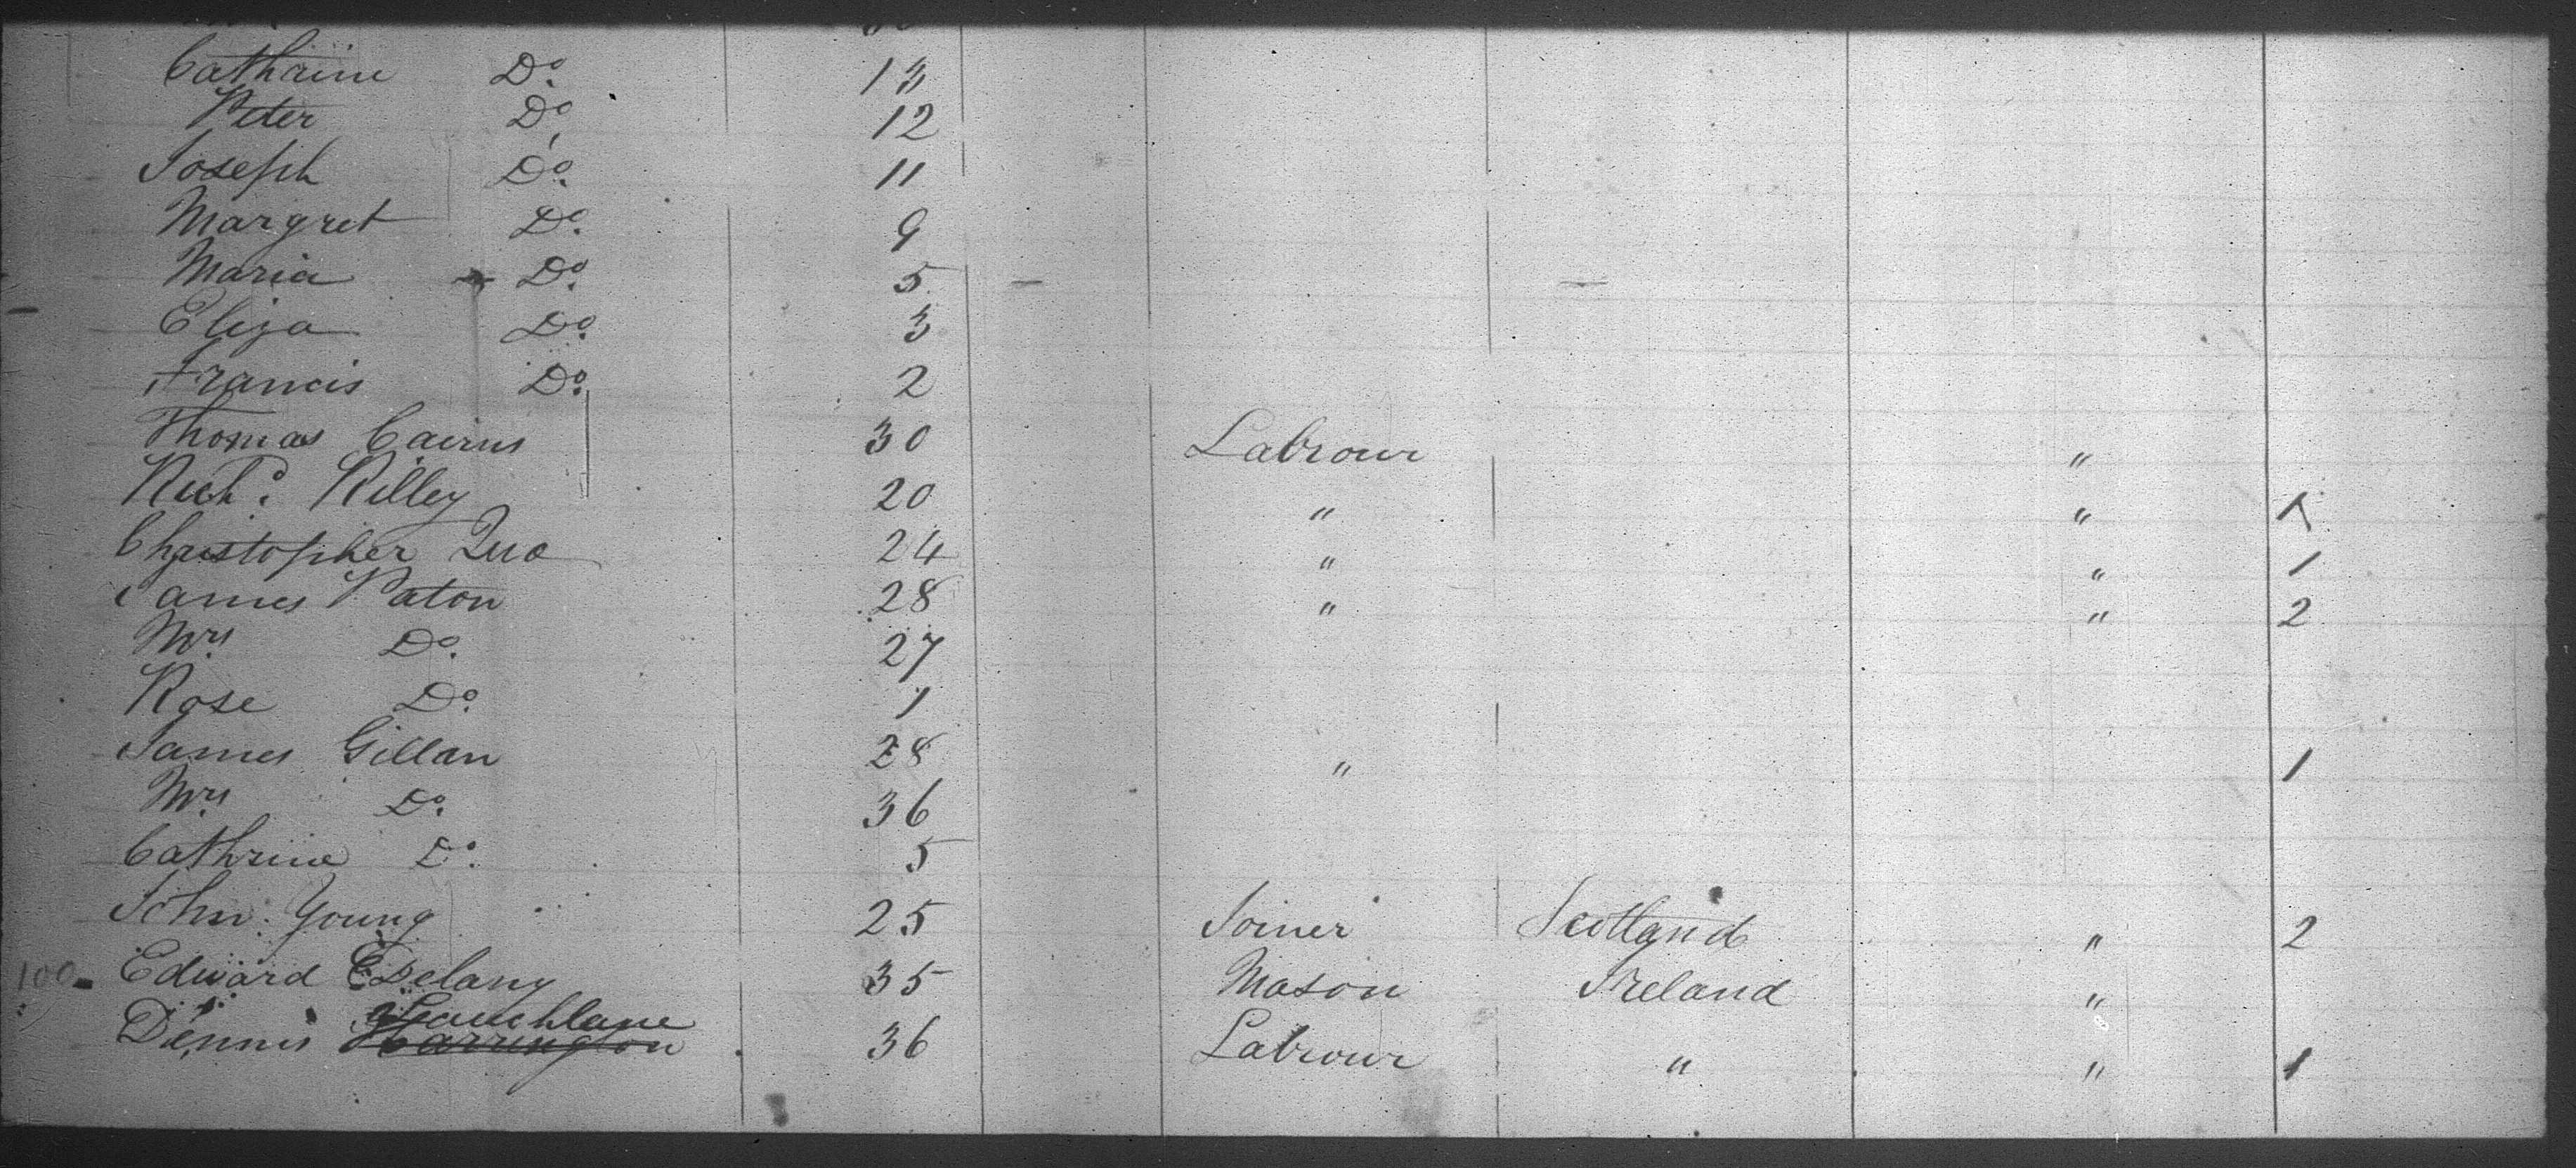 Cathaine Do. 13
Peter Do. 12
Joseph Do. 11
Margret Do. 9
Maria Do. 5
Eliza Do. 3
Francis Do. 2
Thomas Cairns 30 Labrour "
Richd. Rilley 20 " " 1
Christopher Quo 24 " " 1
James Paton 28 " " 2
Mrs Do. 27
Rose Do. 1
James Gillan 28 " 1
Mrs Do. 36
Cathrine Do. 5
John Young 25 Joiner Scotland " 2
100 Edward Delany 35 Mason Ireland "
Dennis Harrington 36 Labrour " " 1